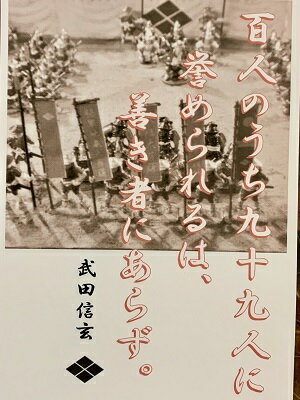 百人のうち九十九人に
誉められるは、
善き者にあらず。
武田信玄